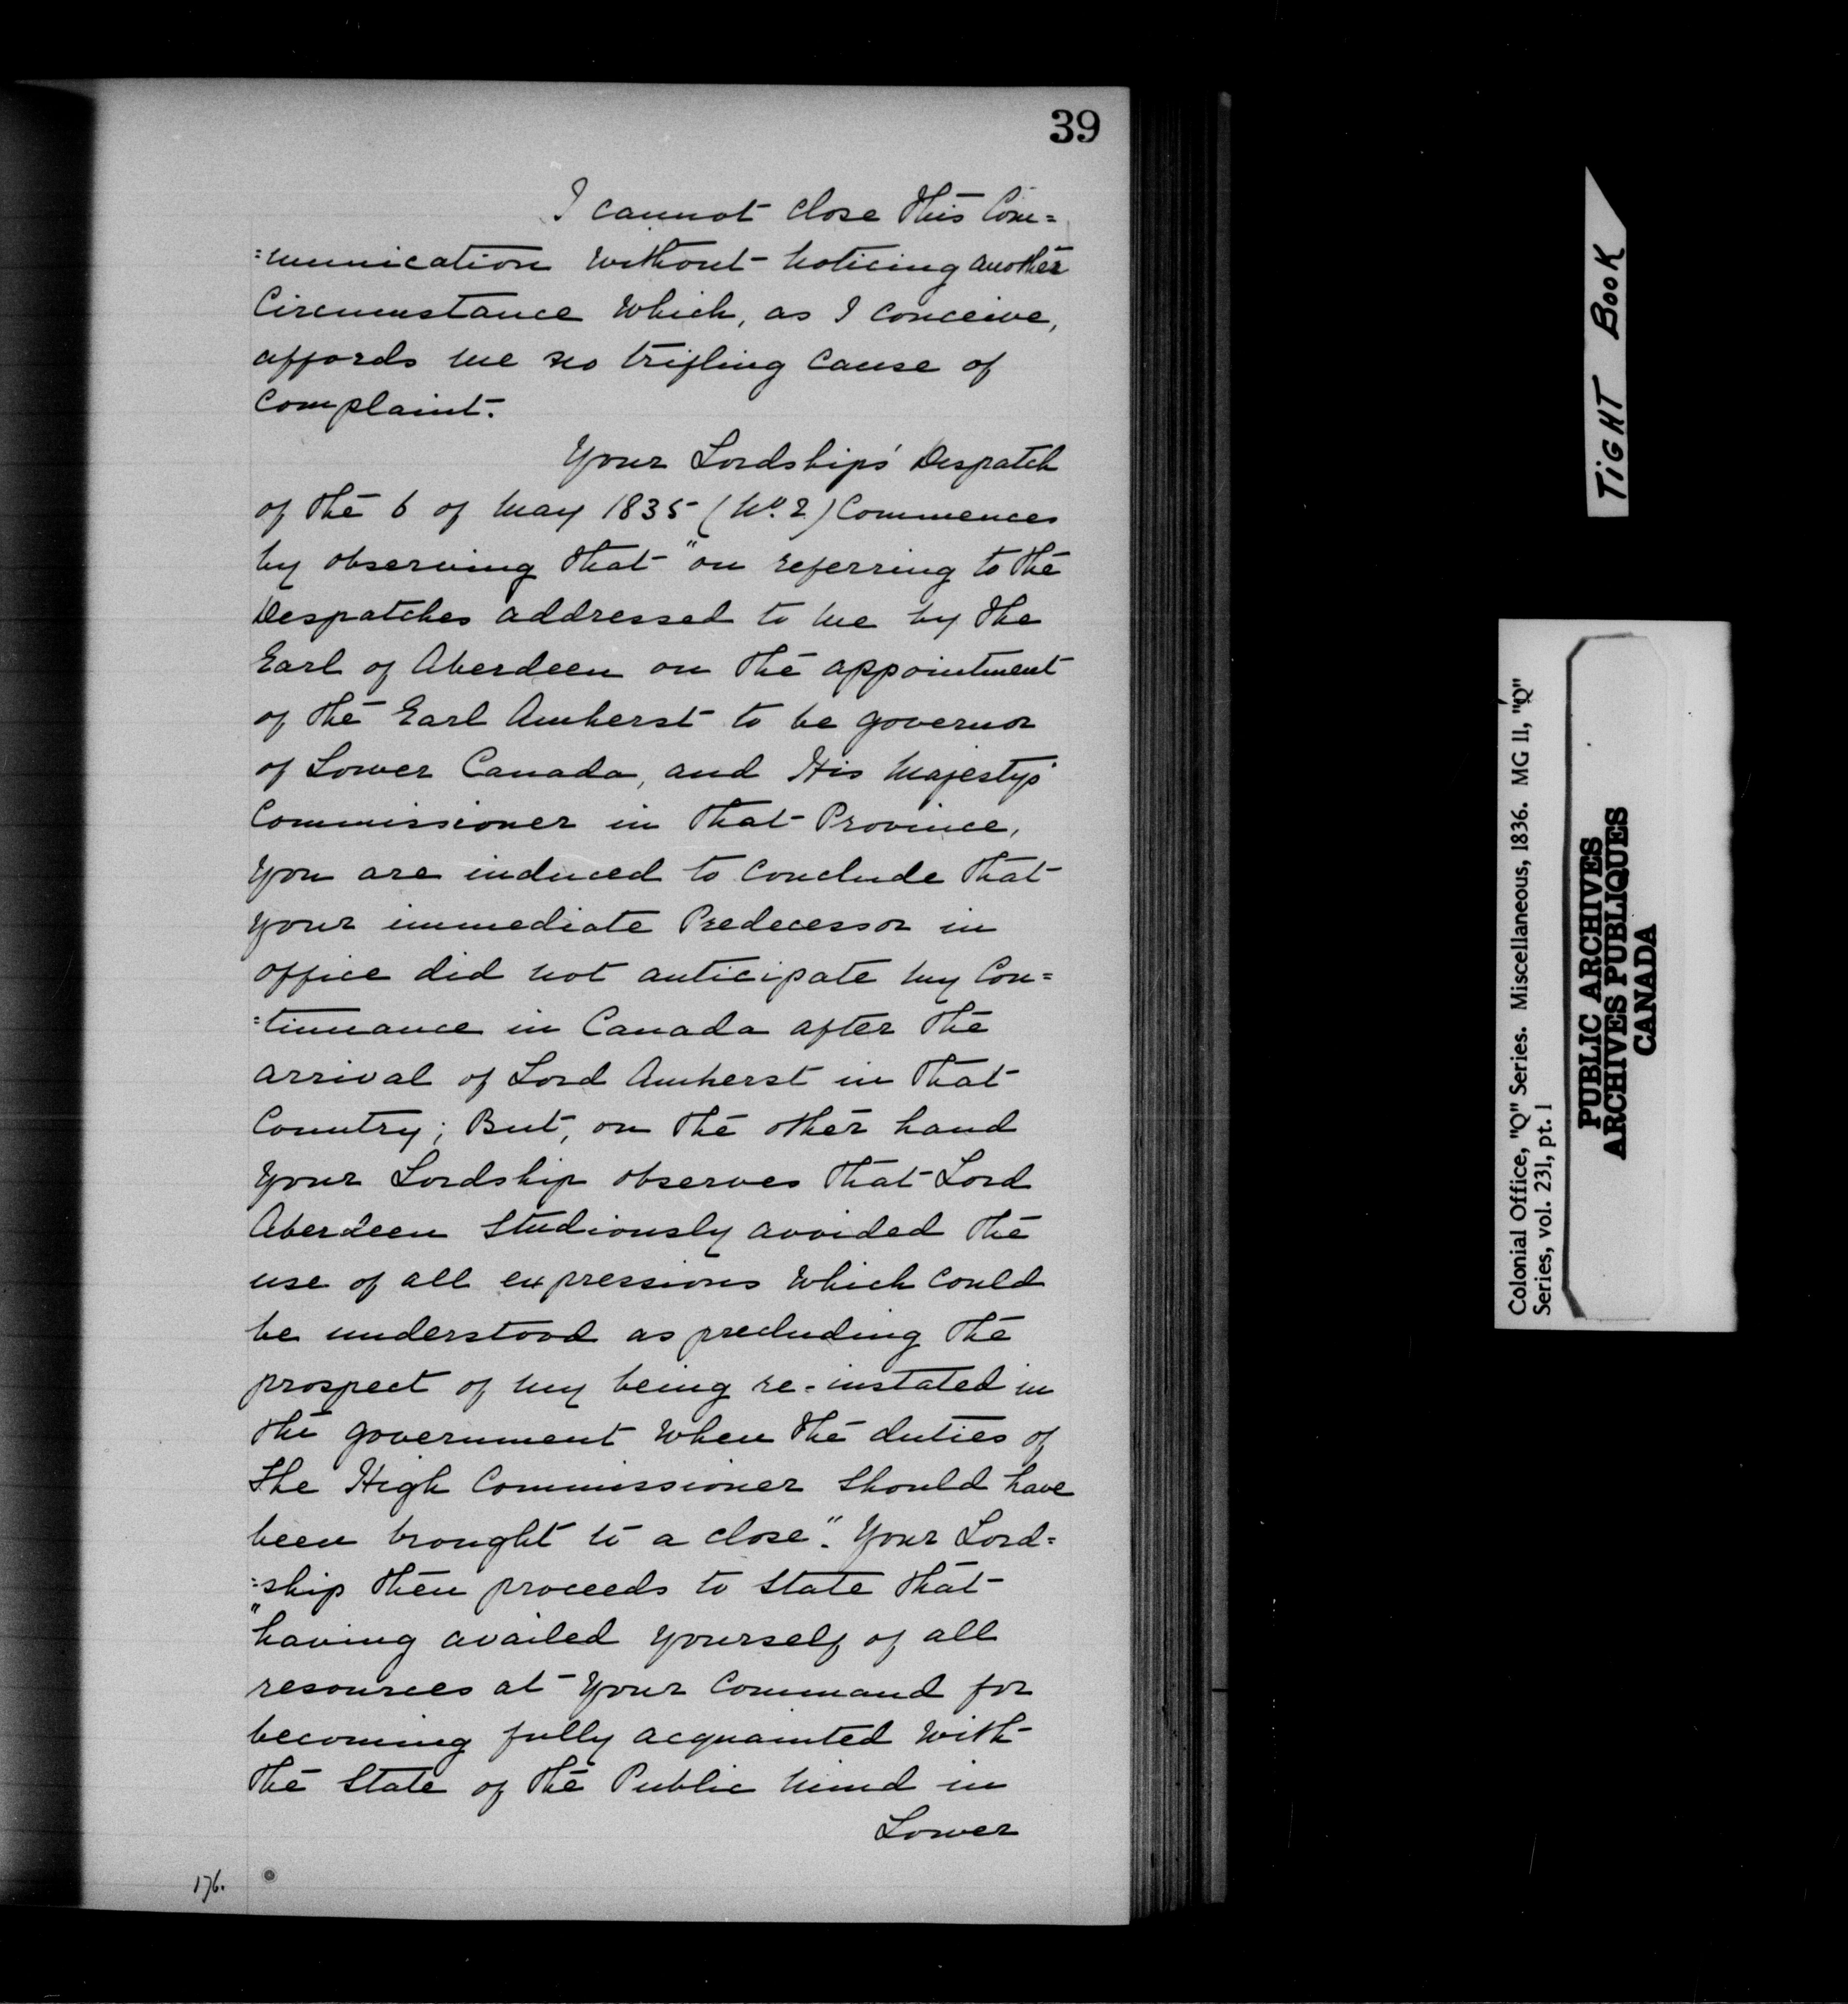 39
I cannot close this Com=
=munication without noticing another
Circumstance which, as I conceive,
affords me no trifling cause of
Complaint.
Your Lordships' Despatch
of the 6 of May 1835 (No. 2) Commences
by observing that "on referring to the
Despatches addressed to me by the
Earl of Aberdeen on the appointment
of the Earl Amherst to be governor
of Lower Canada, and His Majestys'
Commissioner in that Province,
you are induced to conclude that
your immediate Predecessor in
office did not anticipate my Con=
=tinuance in Canada after the
arrival of Lord Amherst in that
Country; But, on the other hand
Your Lordship observes that Lord
Aberdeen studiously avoided the
use of all expressions which could
be understood as precluding the
prospect of my being re-instated in
the government when the duties of
the High Commissioner should have
been brought to a close". Your Lord=
=ship then proceeds to state that
"having availed yourself of all
resources at your command for
becoming fully acquainted with
the State of the Public mind in
Lower
176.
TIGHT BOOK
Colonial Office, "Q" Series. Miscellaneous, 1836. MG 11, "Q"
Series, vol. 231, pt. 1
PUBLIC ARCHIVES
ARCHIVES PUBLIQUES
CANADA